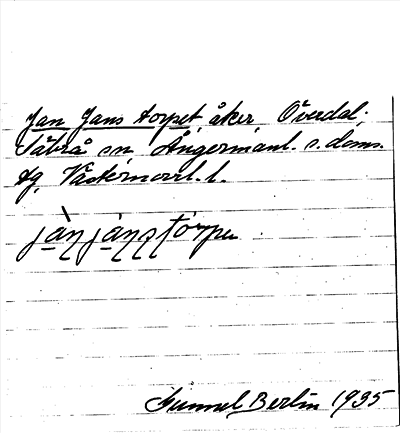 Jan Jans torpet, åker, Överdal,
Säbrå sn, Ångermanl. s. doms.
tg, Västernorrl. l.
jànjánstórpe
Gunnel Berlin 1935